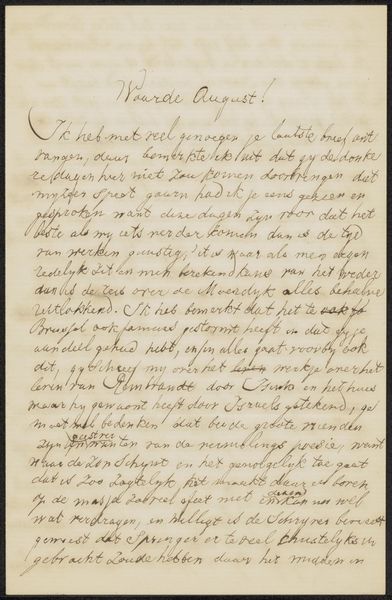 Waarde August!
Ik heb met veel genoegen je laatste brief ont
vangen, daar bemerkte ik uit dat gy de donke
re dagen hier niet zou komen doorbrengen dat
my zeer speet gaarn had ik je eens gezien en
gesproken want deze dagen zyn voor dat het
beste als my iets verder komen dan is de tyd
van werken gunstig, 't is waar als men tegen
zit en men van het weder
dan is de reis over de Moerdyk alles behalve
uitlokkend. Ik heb bemerkt dat het te
Brussel ook fameus gestormt heeft en dat gy je
aandeel gehad hebt, enfin alles gaat voorby ook
dit, gy schreef my over het werkje over het
leven van Rembrandt door en het huis
waar hy gewoont heeft door Israels getekend, ge
moet wel bedenken dat beide groote vrienden
zyn van de poesie, want
waar de Zon Schynt en het genoegelyk toe gaat
dat is Zoo Zagtelyk, het maakt daar en boven
op de masja zooveel efect met kan nog wel
wat verdragen, en is de Schryver bevreest
geweest dat Springer er te veel in
gebracht Zoude hebben daar het midden in